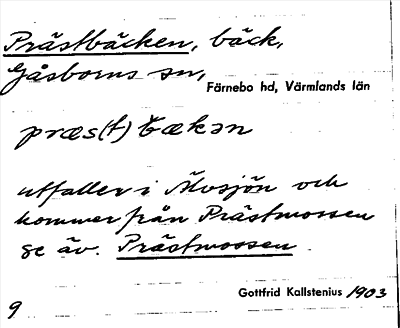 Prästbäcken, bäck,
Gåsborns sn,
Färnebo hd, Värmlands län
præs(t)bækən
utfaller i Älvsjön och
kommer från Prästmossen
se äv. Prästmossen.
Gottfrid Kallstenius 1903
9